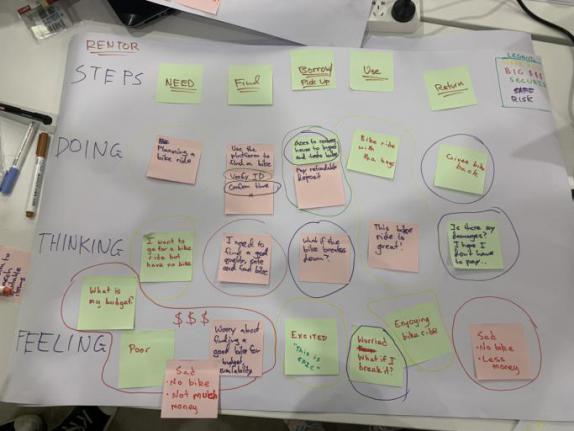 RENTOR
STEPS
NEED
Find
Borrow/
Pick Up
Use
Return
BIG $$$
RISK
DOING
Planning a
bike ride
Use the
platform to
find a bike
Verify ID
Confirm time
Pay refundable
deposit
Bike ride
with
the boys
Gives bike
back
THINKING
I want to
go for a bike
ride but
have no bike
I need to
find a good
quality, safe
and good bike
What if the
bike breaks
down?
This bike
ride is
great!
Is there any
damages?
I hope I
don't have
to pay..
What is
my budget?
$ $ $
FEELING
Poor
Sad
• No bike
• Not much
money
Worry about
finding a
good bike for
budget,
availability
EXCITED
"THIS IS
EPIC"
Worried
What if I
break it?
Enjoying
bike ride
Sad
• No bike
• Less
money